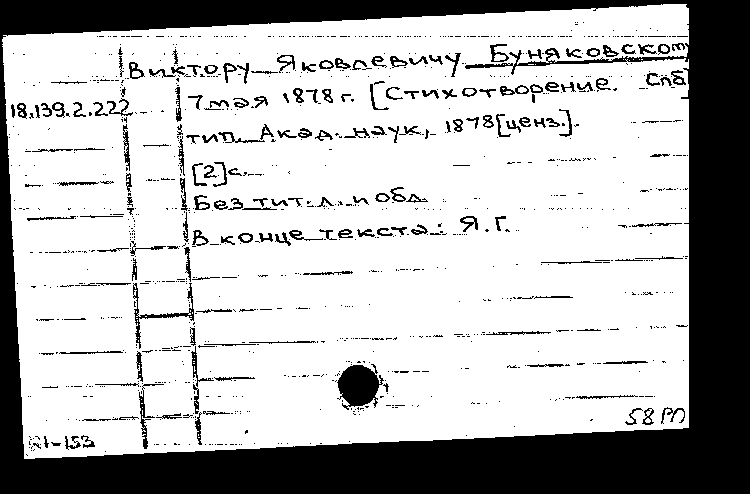 Виктору Яковлевичу Буняковскому
18.139.2.222 7 мая 1878 г. [Стихотворение. Спб
тип. Акад. наук, 1878[ценз.].
[2]с.
Без тит. л. и обл.
В конце текста: Я.Г.
58